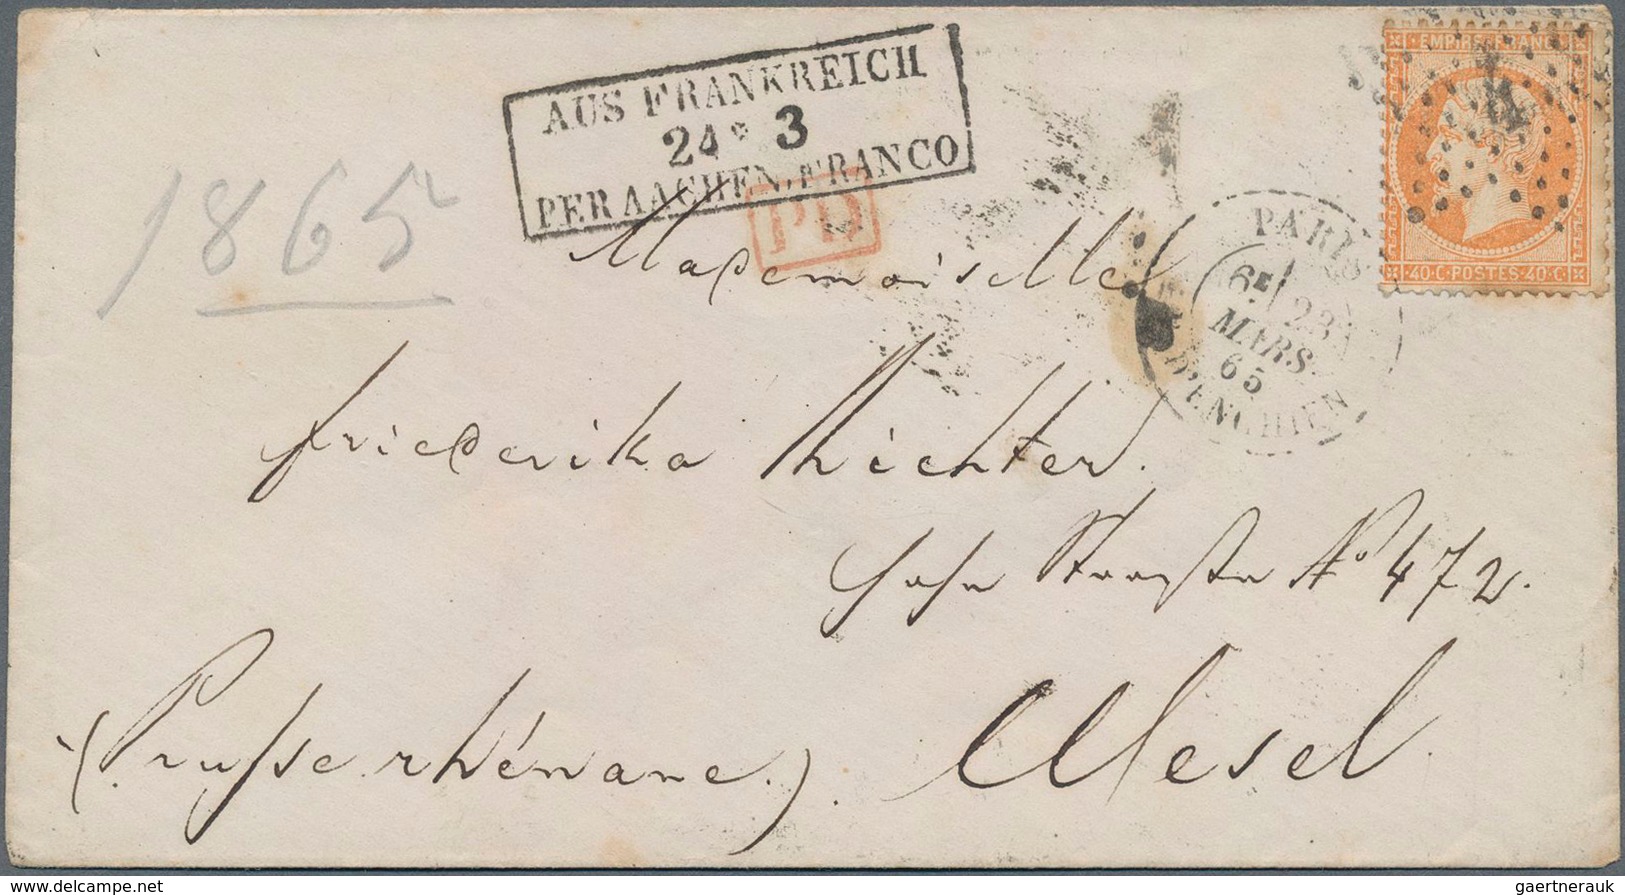 AUS FRANKREICH
24 3
PER AACHEN. FRANCO
PD
1865
EMPIRE FRANC
40·C·POSTES·40·C
PARIS
6E 23
MARS
65
D'ENGHIEN
Mademoiselle
Friederika Richter.
Hohe Straße No 472.
(Prusse rhénane.). Wesel.
www.delcampe.net
gaertnerauk